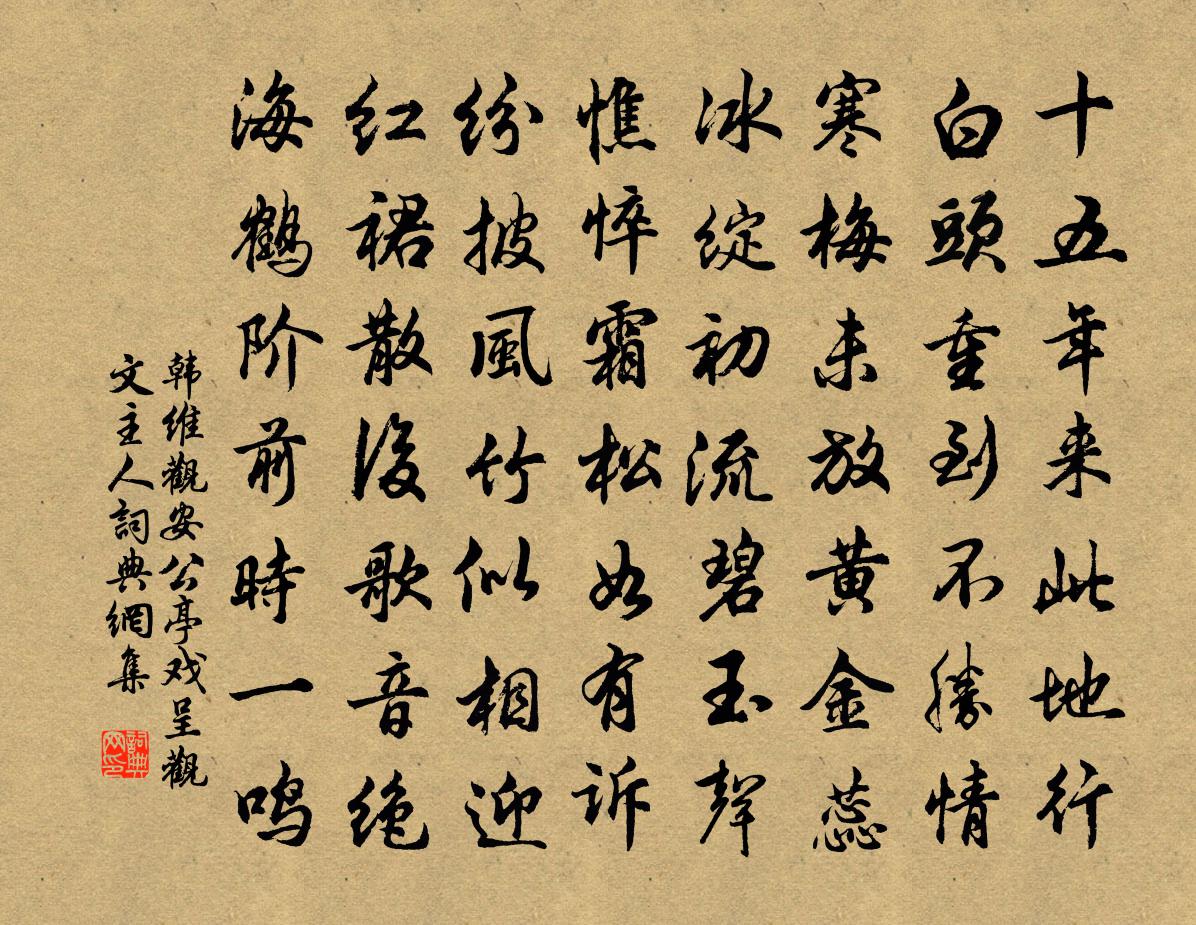 十五年来此地行
白頭重到不勝情
寒梅未放黄金蕊
冰綻初流碧玉聲
憔悴霜松如有诉
纷披風竹似相迎
红裙散後歌音绝
海鶴阶前時一鸣
韩维觀安公亭戏呈觀
文主人詞典網集
詞典
网印